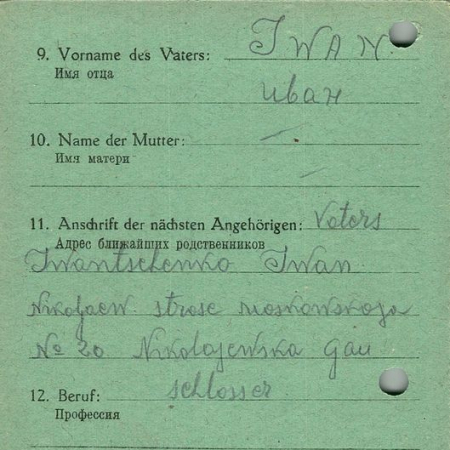 9. Vorname des Vaters: IWAN
Имя отца
Иван
10. Name der Mutter: —
Имя матери
—
11. Anschrift der nächsten Angehörigen: Vaters
Адрес ближайших родственников
Iwantschenko Iwan
Nikolajew strase moskowskaja
№ 20 Nikolajewska Gau
12. Beruf: schlosser
Профессия